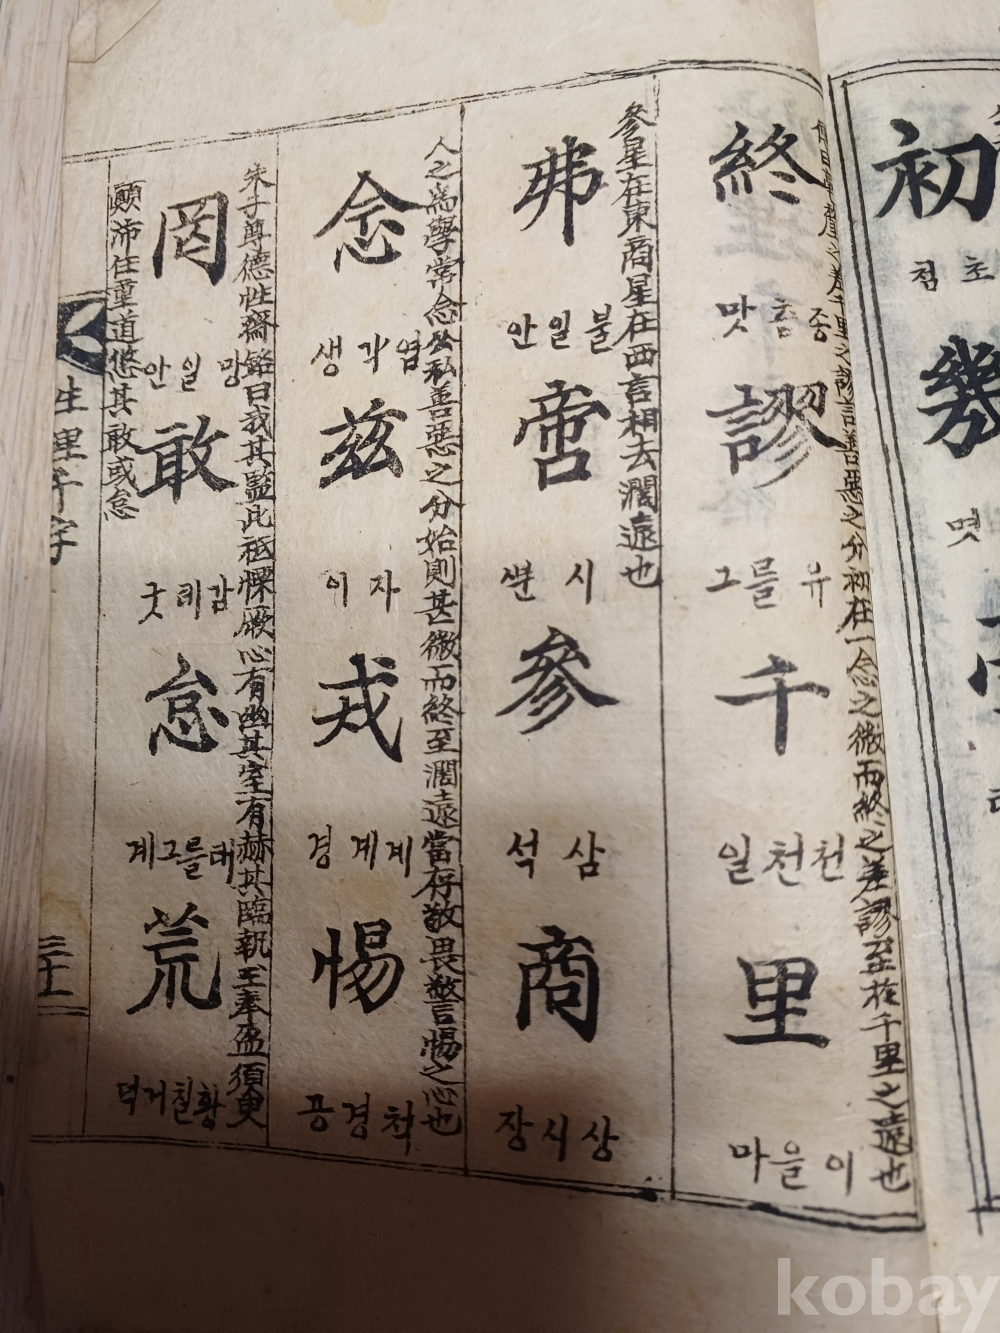 初
첨초
幾
몃
終
맛츰종
謬
그를유
千
일천천
里
마을이
之差千里之謬言善惡之分初在一念之微而終之差謬至於千里之遠也
弗
안일불
啻
샏시
參
석삼
商
장시상
參星在東商星在西言相去濶遠也
念
생각염
玆
이자
戒
경계계
惕
공경척
人之爲學常念公私善惡之分始則甚微而終至濶遠當存敬畏警惕之心也
罔
안일망
敢
굿태감
怠
계그를태
荒
덕거칠황
朱子尊德性齋銘曰我其監此祗慄厥心有幽其室有赫其臨執玉奉盈須臾
顚沛任重道悠其敢或怠
生理千字
三十
kobay